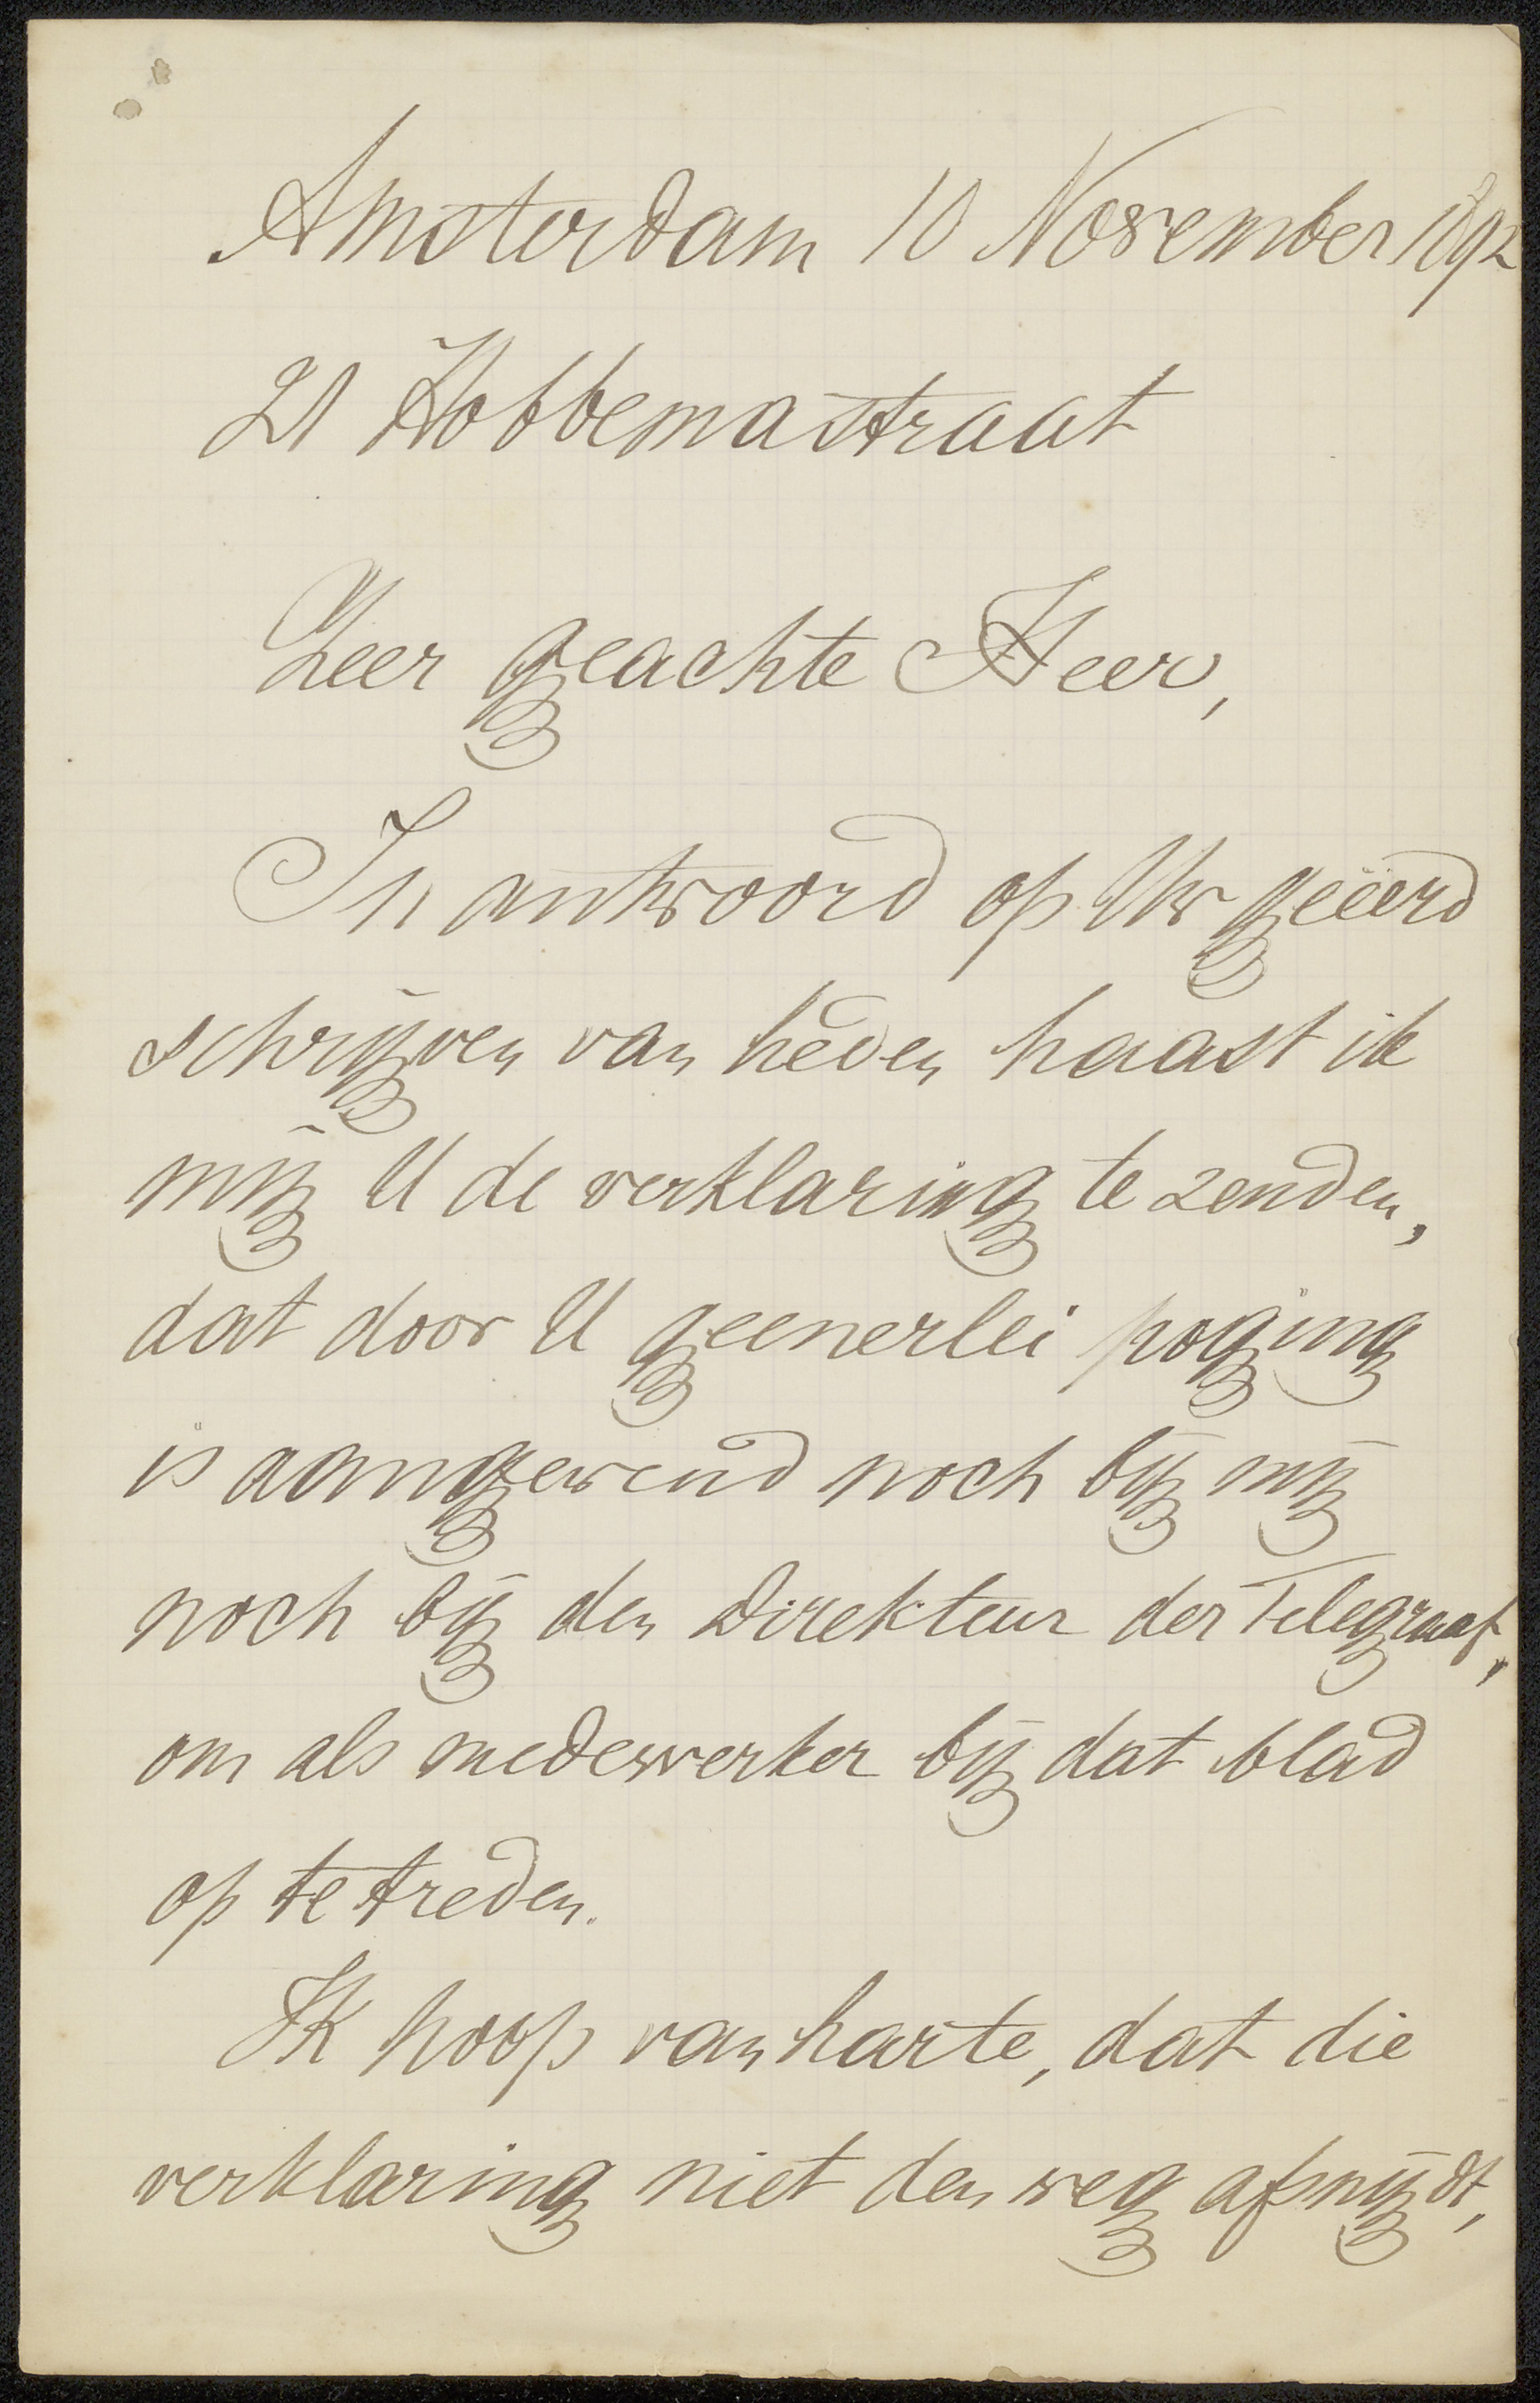 Amsterdam 10 November 1892
21 Hobbemastraat
Zeer geachte Heer,
In antwoord op Uw geëerd
schrijven van heden haast ik
mij U de verklaring te zenden,
dat door U geenerlei poging
is aangewend noch bij mij
noch bij den Direkteur der Telegraaf,
om als medewerker bij dat blad
op te treden.
Ik hoop van harte, dat die
verklaring niet den weg afsnijdt,